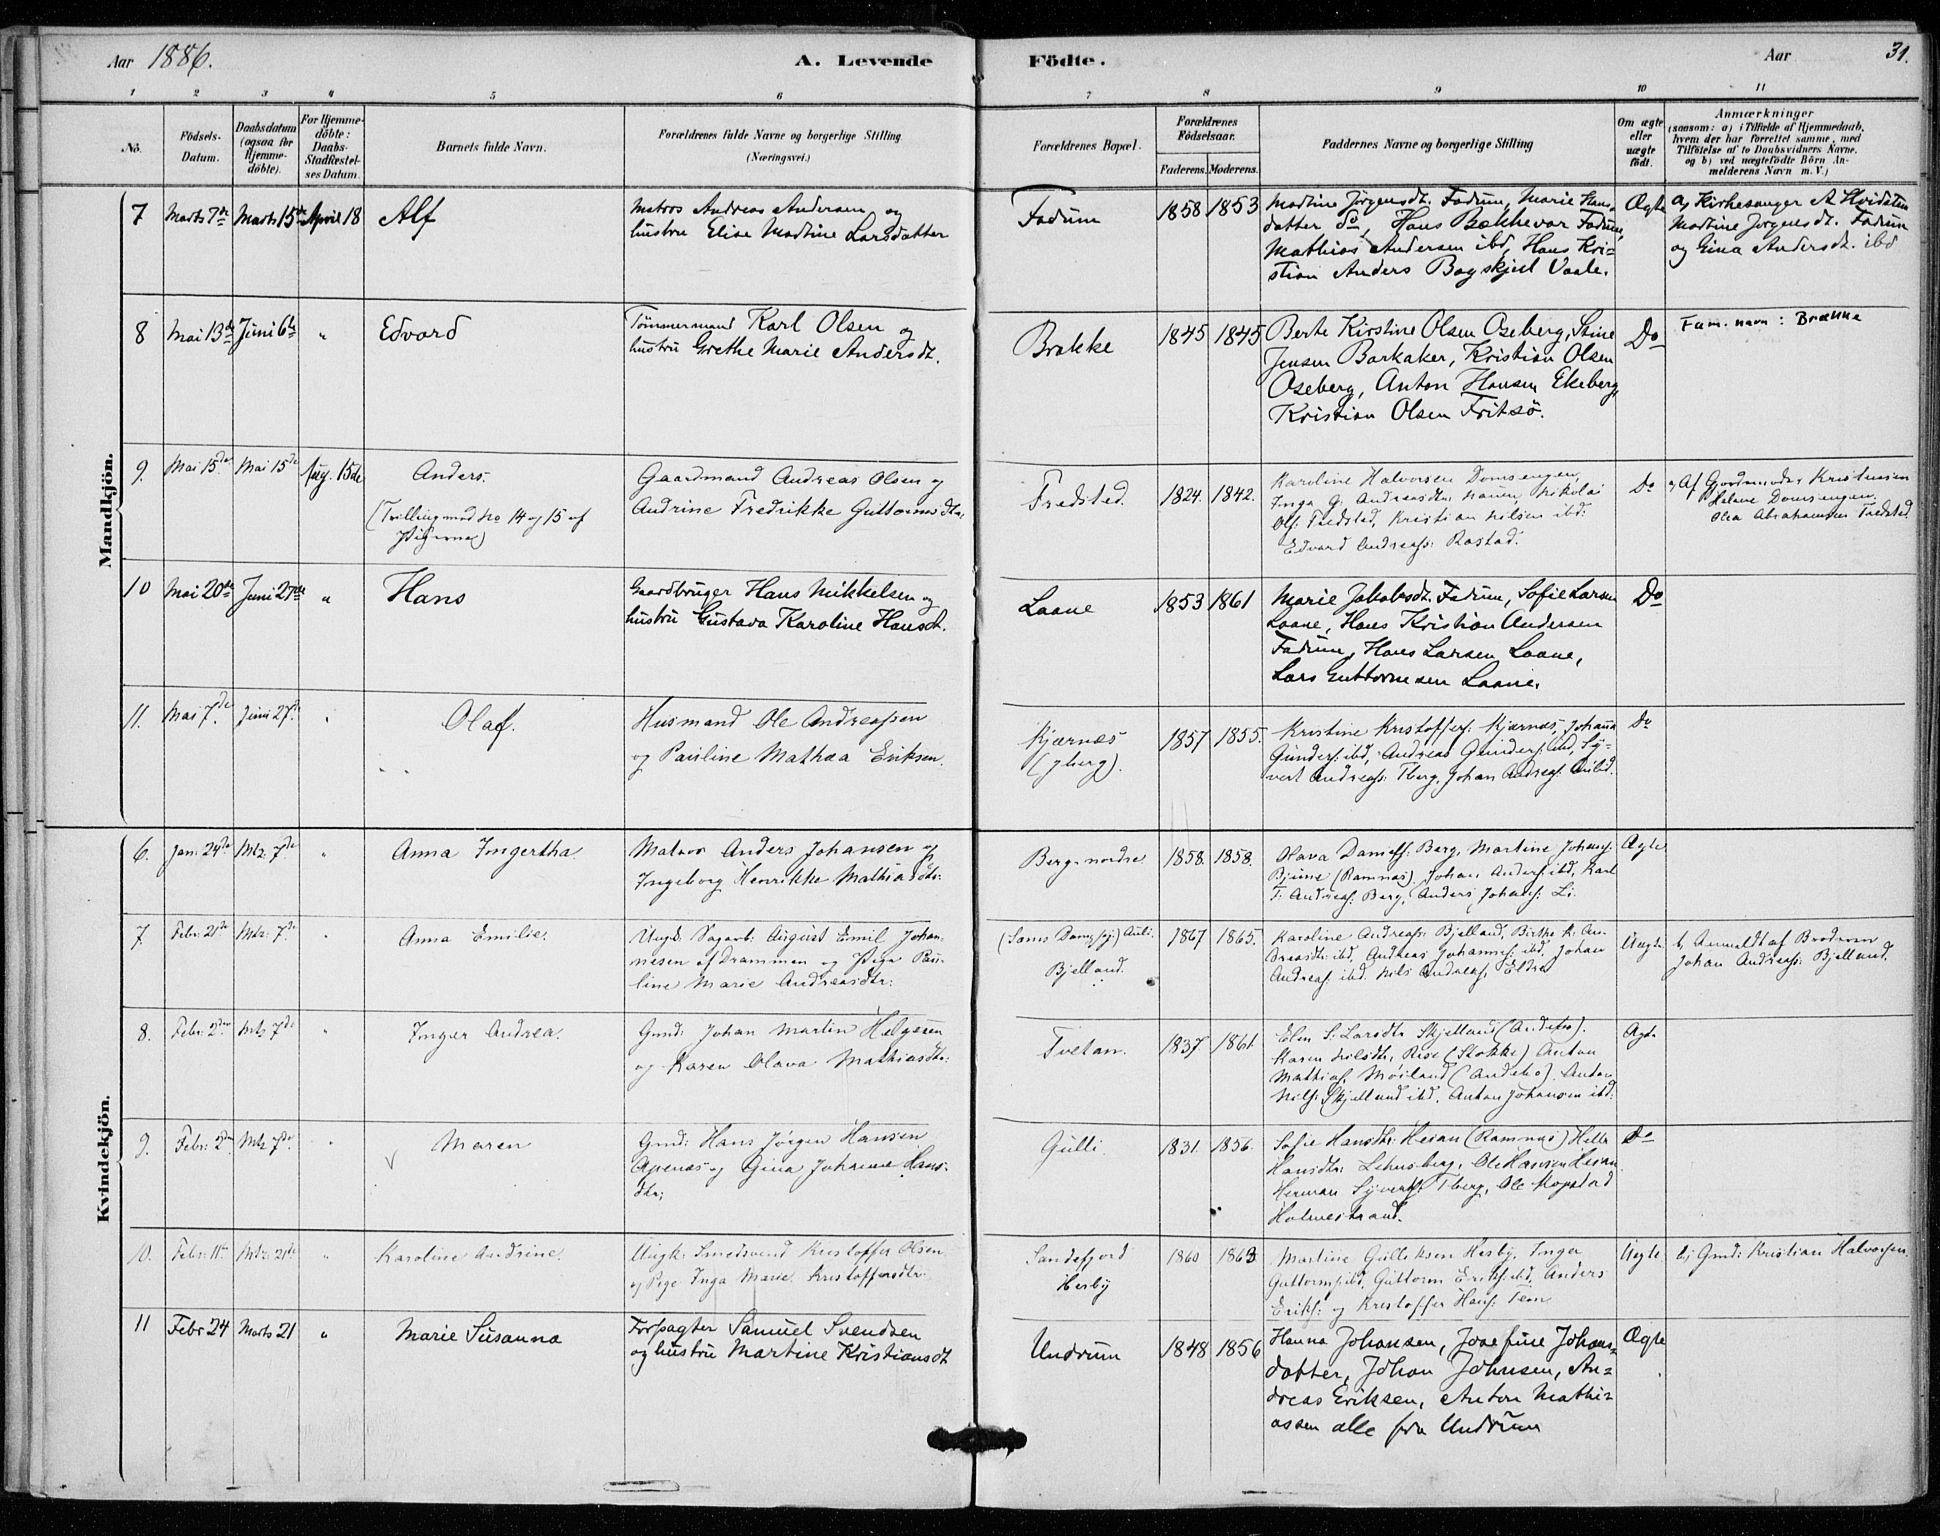 Aar 1886. A. Levende Födte. Aar 31.
1 2 3 4 5 6 7 8 9 10 11
Nô. Födsels-Datum. Daabsdatum (ogsaa for Hjemmedöbte). For Hjemmedöbte: Daabs-Stadfæstelses Datum. Barnets fulde Navn. Forældrenes fulde Navne og borgerlige Stilling. (Næringsvei.) Forældrenes Bopæl. Forældrenes Födselsaar. Faderens. Moderens. Faddernes Navne og borgerlige Stilling Om ægte eller uægte födt. Anmærkninger (saasom: a) i Tilfælde af Hjemmedaab, hvem der har forrettet samme, med Tilföielse af to Daabsvidners Navne, og b) ved uægtefödte Börn Anmelderens Navn m. V.)
Mandkjön.
7 Marts 7de Marts 15de April 18 Alf
Matros Andreas Andersen og
hustru Elise Mathine Larsdatter
Fadum 1858 1853
Martine Jørgensdt. Fadum, Marie Hans
datter do, Hans Bækkevar Fadum,
Mathias Andersen ibd, Hans Kri-
stian Anders Bogskjel Vaale.
Ægte
a, Kirkesanger A Hvidsten
Martine Jørgensdt. Fadum
og Gina Andersdt. ibd
8 Mai 13de Juni 6te " Edvard
Tømmermand Karl Olsen og
hustru Grethe Marie Andersdt.
Brække 1845 1845
Berte Kirstine Olsen Oseberg, Stine
Jensen Barkaker, Kristian Olsen
Oseberg, Anton Hansen Ekeberg,
Kristian Olsen Fritsö.
Do
Fam. navn: Brække
9. Mai 15de Mai 15de Aug. 15de Anders.
(Tvilling med No 14 og 15 af
Pigerne)
Gaardmand Andreas Olsen og
Andrine Fredrikke Guttormsdtr.
Fredsted. 1824. 1842.
Karoline Halvorsen Domsengen,
Inga G. Andreasdtr. Nauen, Nikolai
Ols: Fredsted, Kristian Nilsen ibd:
Edvard Andreass: Rostad.
Do
a, Af Gjordmoder Kristensen
Helene Domsengen
Olea Abrahamsen Fredsted.
10 Mai 20de Juni 27de " Hans
Gaardbruger Hans Mikkelsen og
hustru Gustava Karoline Hansdt.
Laane 1853 1861
Marie Jakobsdt. Fadum, Sofie Larsen
Laane, Hans Kristian Andersen
Fadum, Hans Larsen Laane,
Lars Guttormsen Laane.
Do
11. Mai 7de Juni 27de " Olaf.
Husmand Ole Andreassen
og Pauline Mathea Eriksen.
Kjærnæs
1857 1855.
Kristine Kristoffers: Kjærnæs, Johanna
Gunders: ibd, Andreas Gunders: ibd, Sy-
vert Andreass: Tberg, Johan Andreas:
Do
Kvindekjön.
6. Jan: 24de Mtz: 7de " Anna Ingertha.
Matros Anders Johansen og
Ingeborg Henrikke Mathiasdtr:
Berg-nordre 1858. 1858.
Olava Daniels: Berg, Martine Johans:
Bjune (Ramnæs), Johan Anders: ibd, Karl
F. Andreas: Berg, Anders Johans: Li.
Ægte
7 Febr: 21de Mtz: 7de " Anna Emilie.
Ungk: August Emil Johan-
nesen af Drammen og Pige Pau-
line Marie Andreasdtr:
Auli.
Bjelland.
1867 1865.
Karoline Andreass: Bjelland, Birthe K. An-
dreasdtr: ibd, Andreas Johannes: ibd, Johan
Andreas: ibd. Nils Andreas: Eldre
Uægte
b, Anmeldt af Broderen
Johan Andreass: Bjelland.
8. Febr: 2den Mtz 7de " Inger Andrea.
Gmd: Johan Martin Helgesen
og Karen Olava Mathiasdtr:
Tvetan. 1837. 1861.
Elen S. Larsdtr Skjelland (Andebo).
Karen Nilsdtr, Rise (Stokke) Anton
Mathias. Møiland (Andebo). Anton
Nils: Skjelland ibd, Anton Johansen ibd:
Ægte
9. Febr: 2den Mtz 7de " Maren
Gmd: Hans Jørgen Hansen
Apenæs og Gina Johanne Hans-
dtr;
Gulli. 1831. 1856.
Sofie Hansdtr: Heian (Ramnæs) Helle
Hansdtr: Lehnsberg, Ole Hansen Heian,
Herman Syverts: Tberg, Ole Kopstad
Holmestrand.
Do
10. Febr: 11te Mtz: 21de " Karoline Andrine.
Ungk: Smedsvend Kristoffer Olsen
og Pige Inga Marie Kristoffersdtr:
Sandefjord
Hesby
1860 1863
Martine Gulliksen Hesby, Inger
Guttorms: ibd, Guttorm Eriks: ibd, Anders
Eriks: og Kristoffer Hans: Tem
Uægte
b, Gmd: Kristian Halvorsen
11 Febr 24 Marts 21 " Marie Susanna
Forpagter Samuel Svendsen
og hustru Martine Kristiansdt
Undrum 1848 1856
Hanna Johansen, Josefine Johans-
datter, Johan Johnsen, An-
dreas Eriksen, Anton Mathi-
assen alle fra Undrum
Ægte